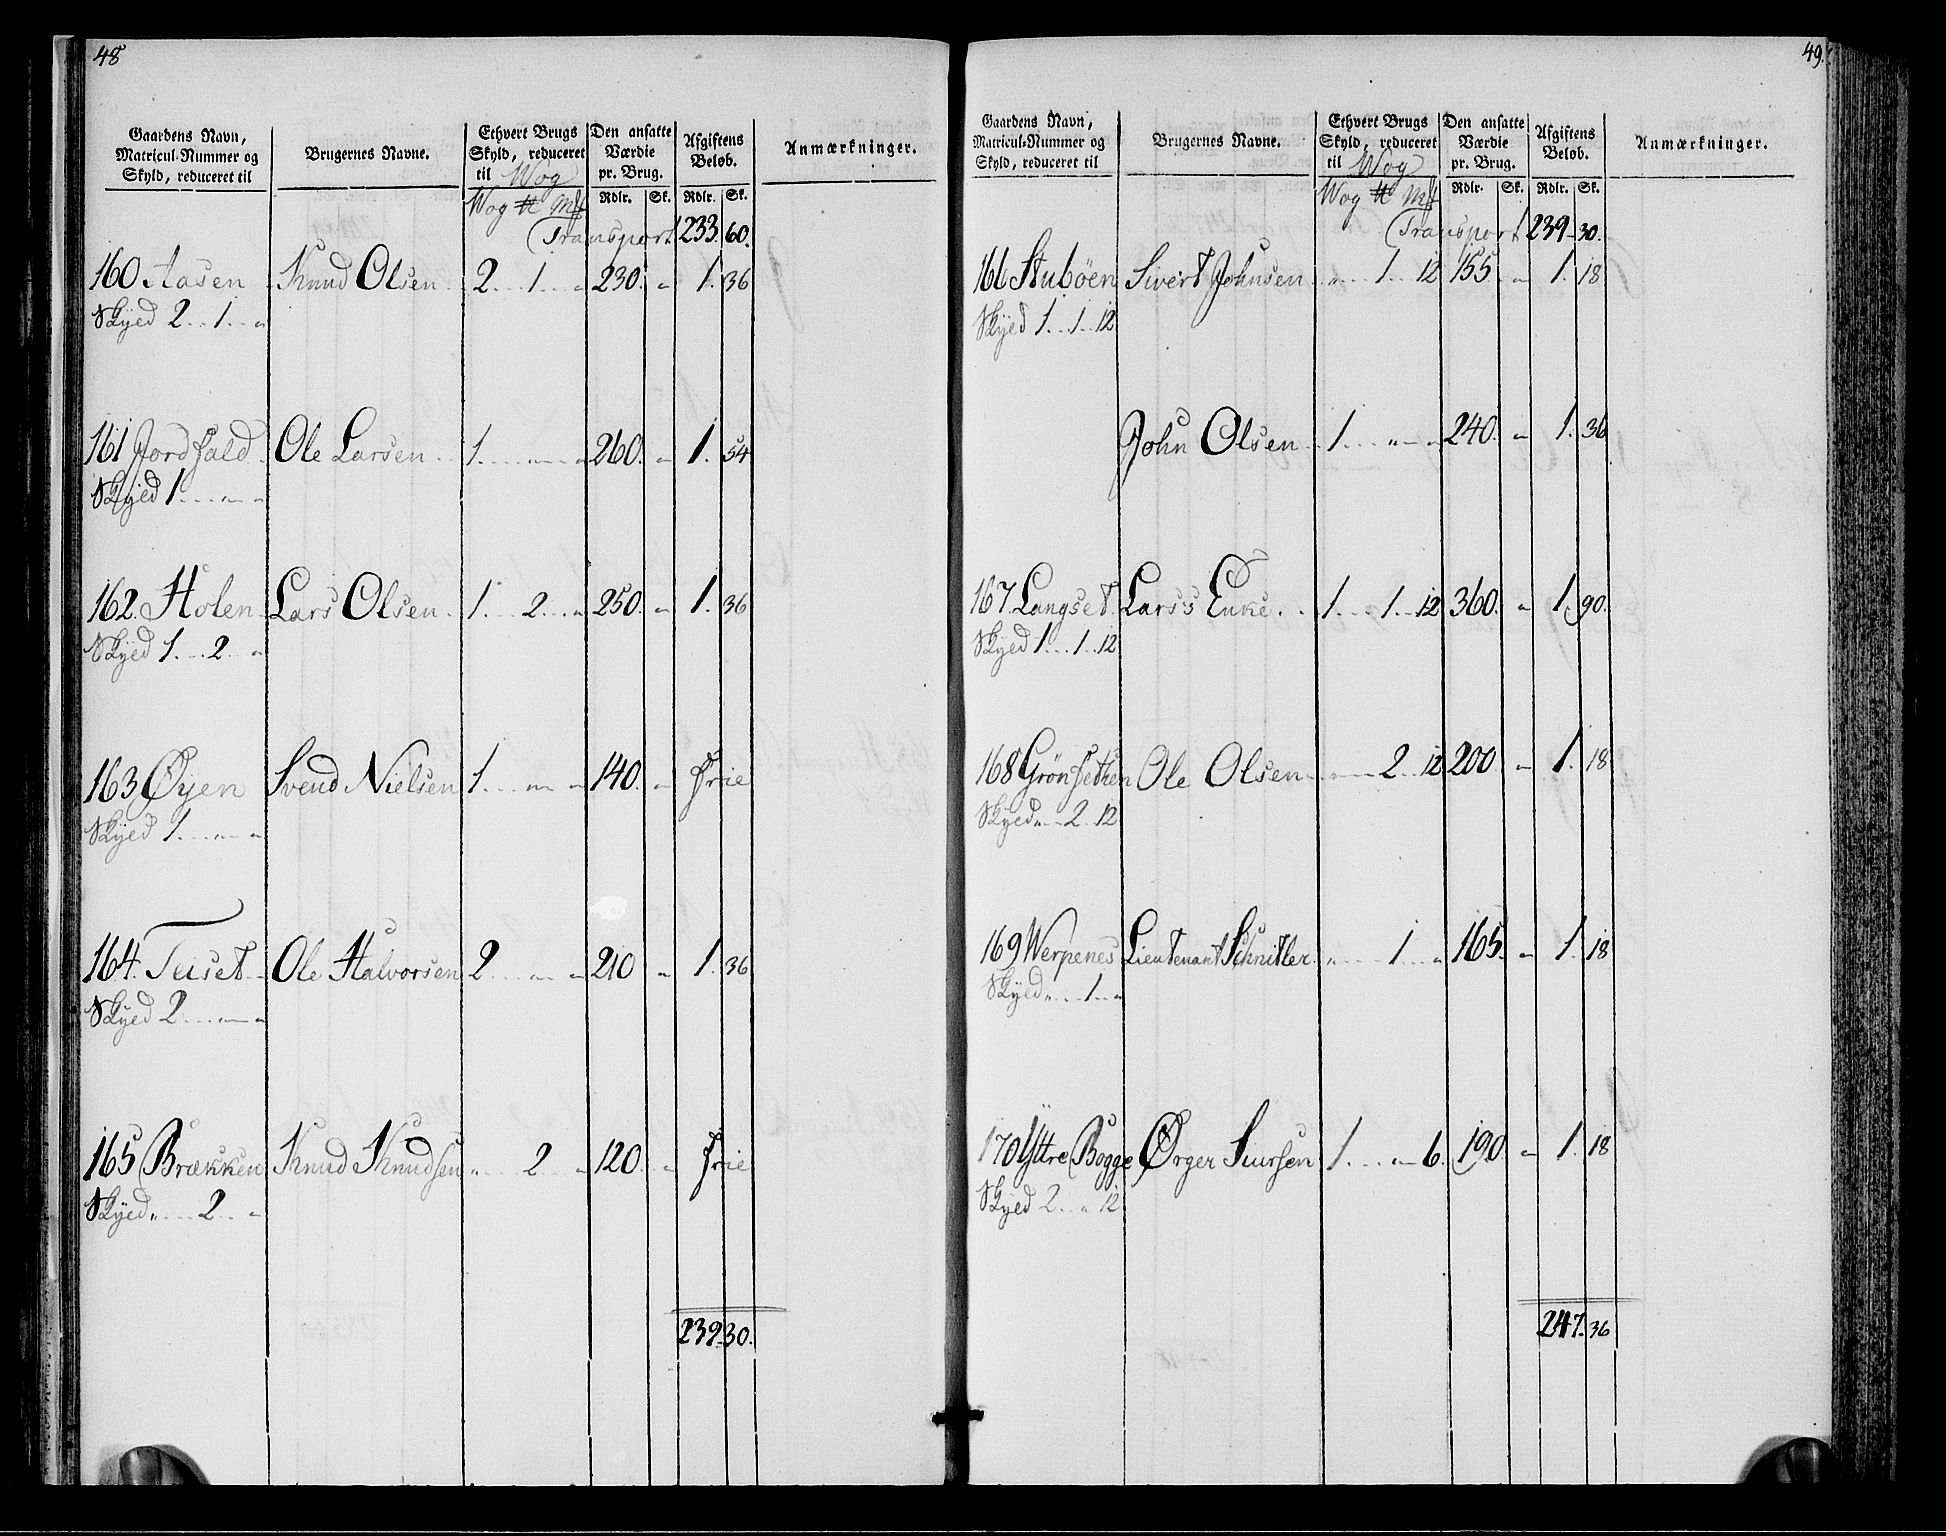 48
Gaardens Navn, Matricul-Nummer og Skyld, reduceret til | Brugernes Navne. | Ethvert Brugs Skyld, reduceret til Wog | Den ansatte Værdie pr. Brug. | Afgiftens Beløb. | Anmærkninger.
Wog ℔ Mk | Rdlr. | Sk. | Rdlr. | Sk.
Transport 233. 60.
160 Aasen Knud Olsen 2 . . 1 . . „ 230. „ 1. 36
Skyed 2 . . 1 . . „
161 Jordfald Ole Larsen 1 . . „ . . „ 260. „ 1. 54
Skyed 1 . . „ . . „
162. Holen Lars Olsen 1 . . 2 . . „ 250. „ 1. 36
Skyed 1 . . 2 . . „
163 Øyen Svend Nielsen 1 . . „ . . „ 140. „ frie
Skyed 1 . . „ . . „
164. Teiset Ole Halvorsen 2 . . „ . . „ 210 „ 1. 36
Skyed 2 . . „ . . „
165 Brækken Knud Knudsen „ . . 2 . . „ 120. „ frie
Skyed „ . . 2 . . „
239. 30.
49.
Gaardens Navn, Matricul-Nummer og Skyld, reduceret til | Brugernes Navne. | Ethvert Brugs Skyld, reduceret til Wog | Den ansatte Værdie pr. Brug. | Afgiftens Beløb. | Anmærkninger.
Wog ℔ Mk | Rdlr. | Sk. | Rdlr. | Sk.
Transport 239. 30.
166 Stubøen Sivert Johnsen „ . . 1 . . 12 155 „ 1. 18
Skyed 1 . . 1 . . 12
John Olsen 1 . . „ . . „ 240. „ 1. 36
167. Langset Lars 1 . . 1 . . 12 360. „ 1. 90.
Skyed 1 . . 1 . . 12
168 Grönsethen Ole Olsen „ . . 2 . . 12 200 „ 1. 18
Skyed „ . . 2 . . 12
169 Werpenes Lieutenant Schnitler „ . . 1 . . „ 165. „ 1. 18
Skyed „ . . 1 . . „
170 Yttre Bogge Ørger Siursen 1 . . „ . . 6. 190. „ 1. 18
Skyed 2 . . „ . . 12
247. 36